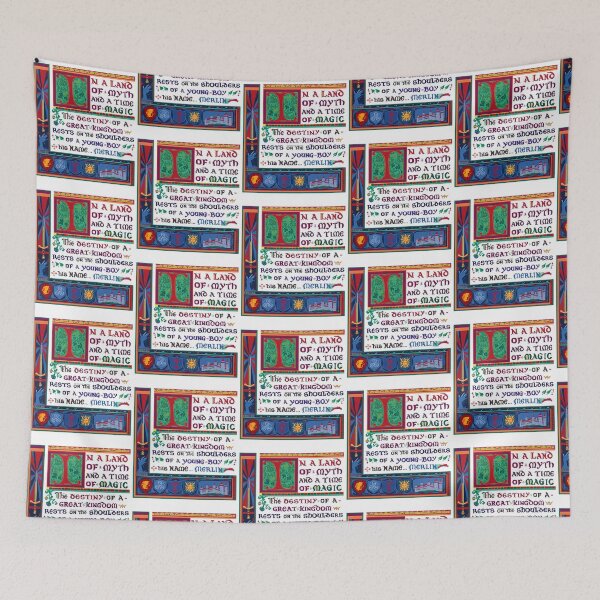 IN A LAND
OF · MYTH
AND A TIME
OF · MAGIC
The DESTINY · OF A ·
GREAT · KINGDOM
RESTS ON the ShOULDERS
OF A YOUNG · BOY
his NAME... MERLIN